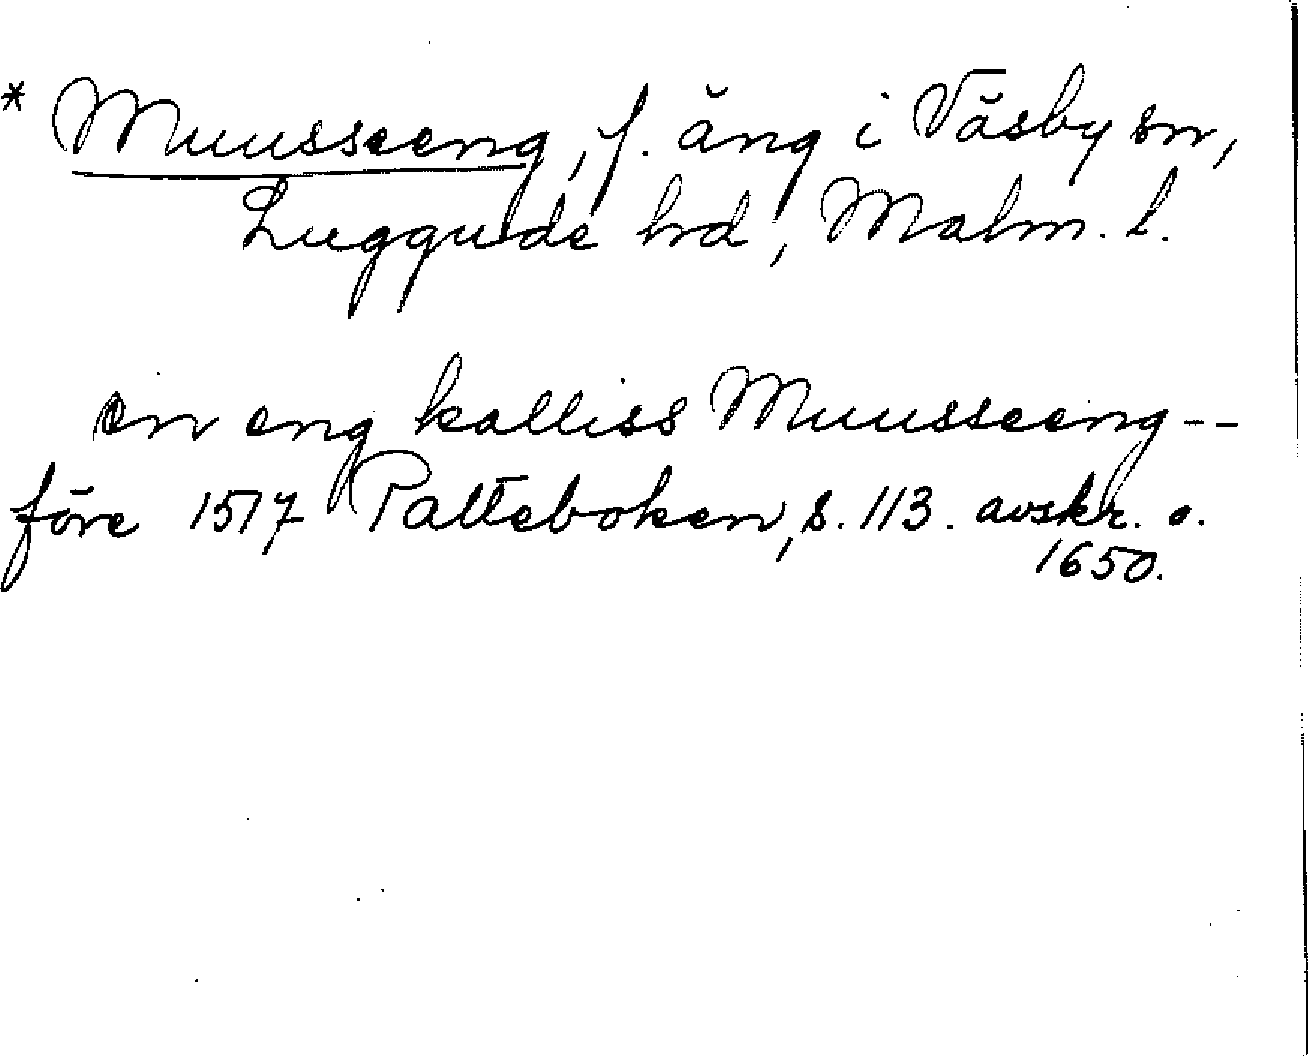 * Muusseeng, f. äng i Väsby sn,
Luggude hd, Malm. l.
en eng kalliss Muusseeng--
före 1517 Palteboken, s. 113. avskr. o.
1650.